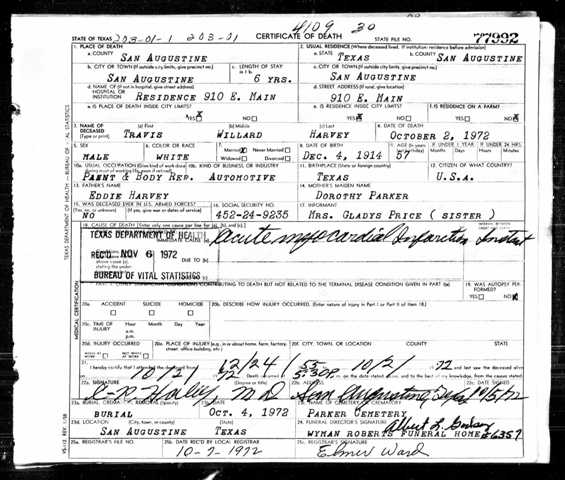 4109 30
STATE OF TEXAS 203-01-1 203-01 CERTIFICATE OF DEATH STATE FILE NO. 77992
1. PLACE OF DEATH 2. USUAL RESIDENCE (Where deceased lived. If institution: residence before admission)
a. COUNTY SAN AUGUSTINE a. STATE TEXAS b. COUNTY SAN AUGUSTINE
b. CITY OR TOWN (If outside city limits, give precinct no.) c. LENGTH OF STAY in 1 b c. CITY OR TOWN (If outside city limits, give precinct no.)
SAN AUGUSTINE 6 YRS. SAN AUGUSTINE
d. NAME OF (If not in hospital, give street address) HOSPITAL OR INSTITUTION d. STREET ADDRESS (If rural, give location)
RESIDENCE 910 E. MAIN 910 E. MAIN
e. IS PLACE OF DEATH INSIDE CITY LIMITS? e. IS RESIDENCE INSIDE CITY LIMITS? f. IS RESIDENCE ON A FARM?
YES X NO YES X NO YES NO X
3. NAME OF DECEASED (Type or print) (a) First (b) Middle (c) Last 4. DATE OF DEATH
TRAVIS WILLARD HARVEY OCTOBER 2, 1972
5. SEX 6. COLOR OR RACE 7. Married X Never Married Widowed Divorced 8. DATE OF BIRTH 9. AGE (In years last birthday) IF UNDER 1 YEAR IF UNDER 24 HRS.
Months Days Hours Minutes
MALE WHITE DEC. 4, 1914 57
10a. USUAL OCCUPATION (Give kind of work done) 10b. KIND OF BUSINESS OR INDUSTRY 11. BIRTHPLACE (State or foreign country) 12. CITIZEN OF WHAT COUNTRY?
PAENT & BODY REP. AUTOMOTIVE TEXAS U.S.A.
13. FATHER'S NAME 14. MOTHER'S MAIDEN NAME
EDDIE HARVEY DOROTHY PARKER
15. WAS DECEASED EVER IN U.S. ARMED FORCES? 16. SOCIAL SECURITY NO. 17. INFORMANT
(If yes, give war or dates of service)
NO 452-24-9235 MRS. GLADYS PRICE (SISTER)
18. CAUSE OF DEATH [Enter only one cause per line for (a), (b), and (c).] INTERVAL BETWEEN
TEXAS DEPARTMENT OF HEALTH Acute myocardial Infarction Instant
REC'D NOV 6 1972 DUE TO (b)
BUREAU OF VITAL STATISTICS
CONDITIONS CONTRIBUTING TO DEATH BUT NOT RELATED TO THE TERMINAL DISEASE CONDITION GIVEN IN PART I(a) 19. WAS AUTOPSY PERFORMED?
YES NO X
20a. ACCIDENT SUICIDE HOMICIDE 20b. DESCRIBE HOW INJURY OCCURRED. (Enter nature of injury in Part I or Part II of item 18.)
20c. TIME OF INJURY Hour Month Day Year
a.m.
p.m.
20d. INJURY OCCURRED 20e. PLACE OF INJURY (e.g., in or about home, farm, factory, street, office building, etc.) 20f. CITY, TOWN, OR LOCATION COUNTY STATE
21. I hereby certify that I attended the deceased from 12/24/ 10/2/ 72
10/2/ 72 5:30P m. on the date stated above, and to the best of my knowledge, from the causes stated.
22a. SIGNATURE (Degree or title) 22b. ADDRESS 22c. DATE SIGNED
M D San Augustine, Texas 10/5/72
BURIAL OCT. 4, 1972 PARKER CEMETERY
23d. LOCATION (City, town, or county) (State) 24. FUNERAL DIRECTOR'S SIGNATURE
SAN AUGUSTINE TEXAS WYMAN ROBERTS FUNERAL HOME #6357
25a. REGISTRAR'S FILE NO. 25b. DATE REC'D BY LOCAL REGISTRAR 25c. REGISTRAR'S SIGNATURE
10-7-1972 Elmer Ward
TEXAS DEPARTMENT OF HEALTH — BUREAU OF VITAL STATISTICS
MEDICAL CERTIFICATION
VS-112 REV. 1/58